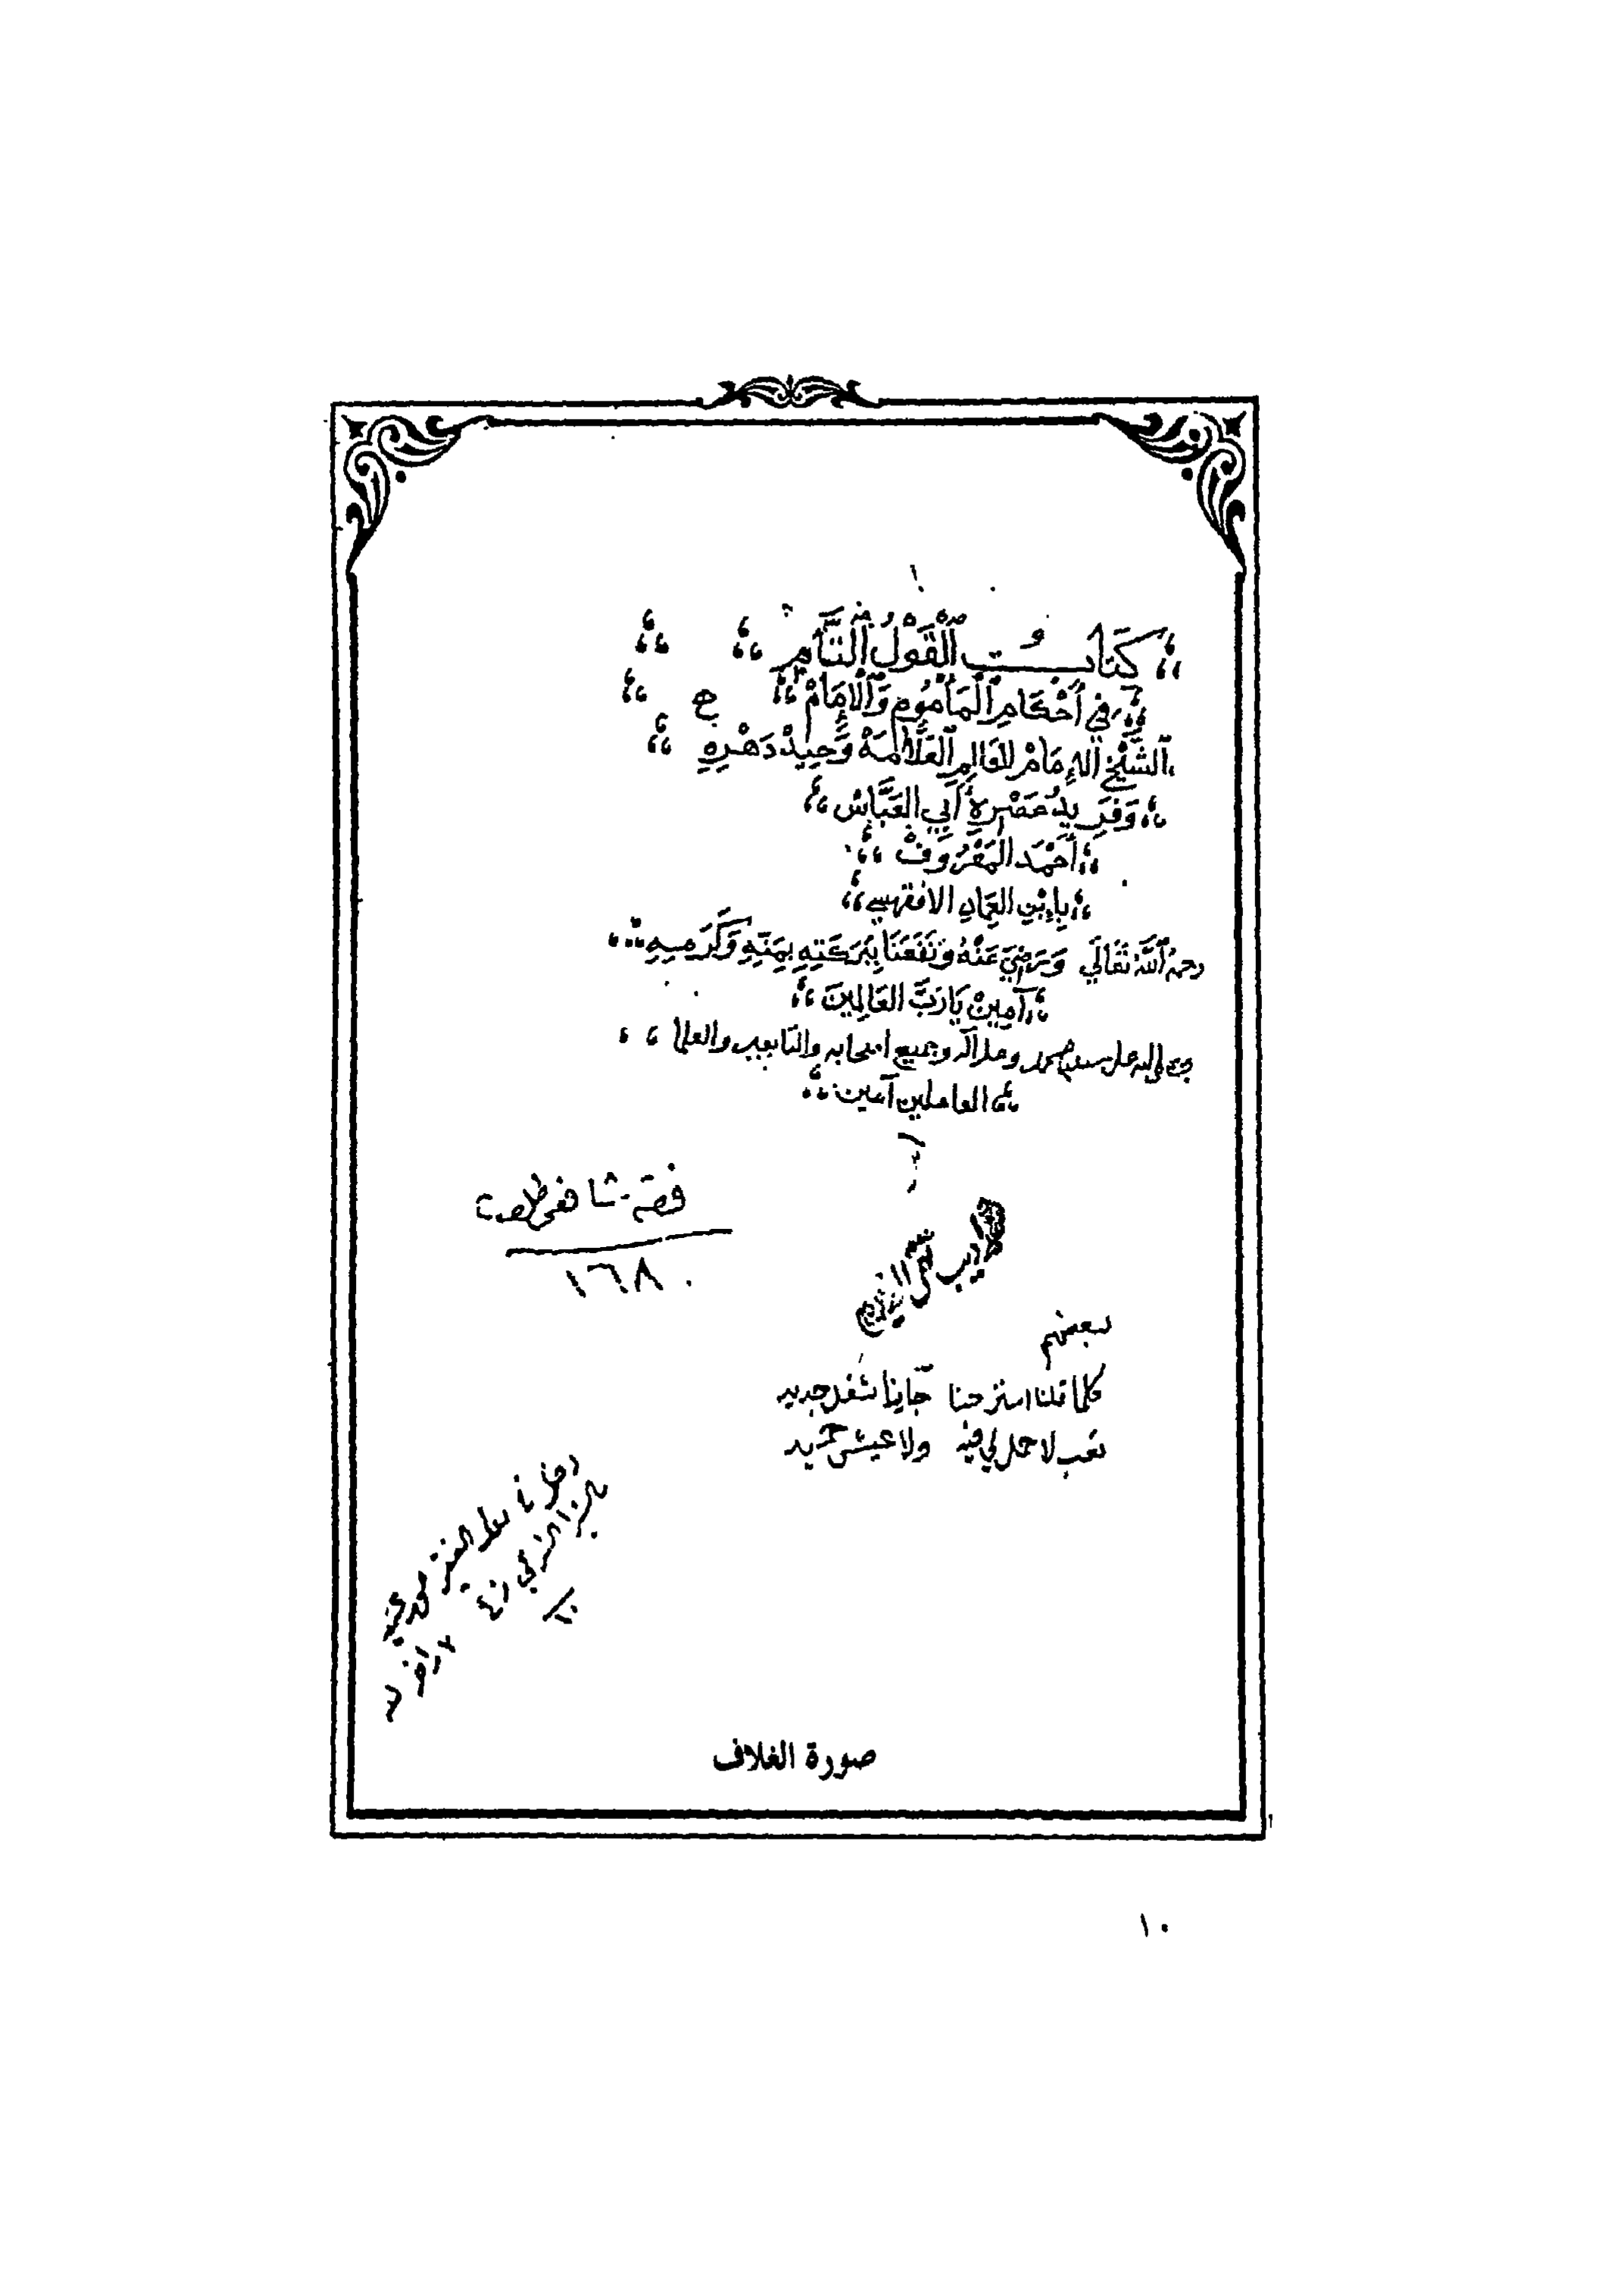 كِتَابُ ٱلْقَوْلُ التَّامِ
فِي أَحْكَامِ ٱلْمَأْمُومِ وَٱلْإِمَامْ ح
ٱلشَّيْخِ الإِمَامْ العَالِمِ العَلَّامَهْ وَحِيدْ دَهْرِهِ
وَفَرِيدُ عَصْرِهِ أَبِي العَبَّاسْ
أَحْمَد المَعْرُوفْ
بِابْنِ العِمَادِ الاقفهسي
رحمهُ ٱللَّهُ تَعَالَي وَرَضِيَ عَنْهُ وَنَفَعَنَا بِبَرَكَتِهِ بِمَنِّهِ وَكَرَمِهِ
آمِينْ يَا رَبَّ العَالَمِينَ
وصلى الله على سيدنا محمد وعلى آله وجميع اصحابه والتابعين والعلما
العاملين آمين
فقه شافعى طلعت
١٦٨
لبعضهم
كلما قلنا استرحنا جآينا شغل جديد
تعب لا حمل لي فيه ولا عيش حميد
صورة الغلاف
١٠